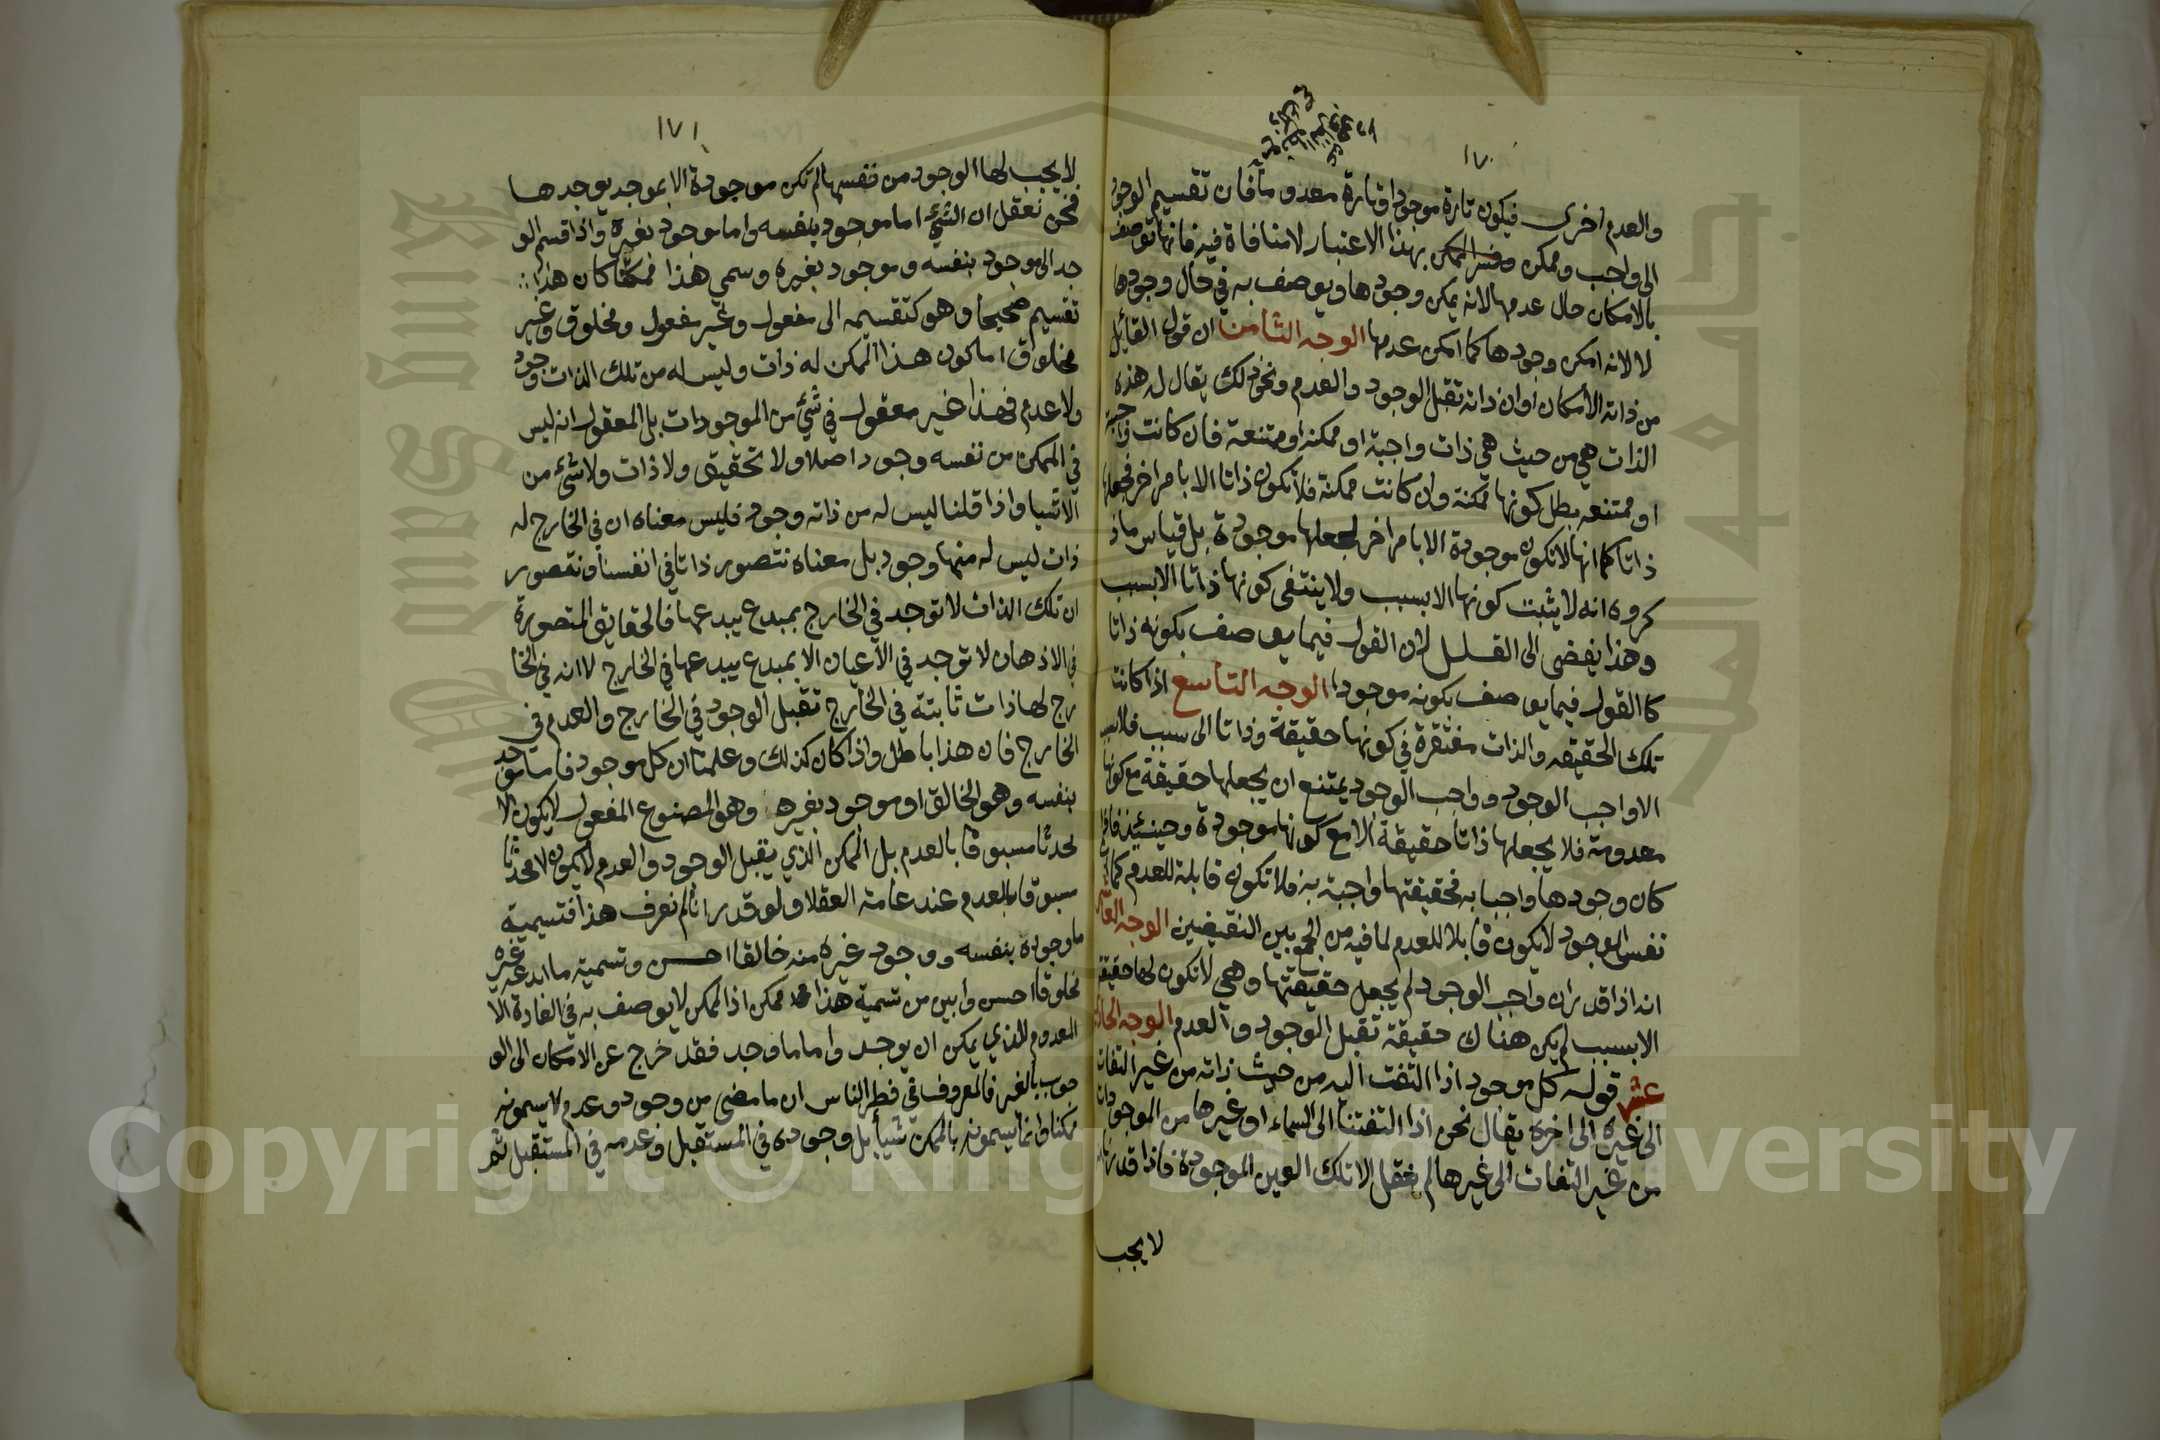 ١٧٠
والعدم اخرى فيكون تارة موجودا وتارة معدوما فان تقسيم الوجود
الى واجب وممكن وفسر الممكن بهذا الاعتبار لا منافاة فيه فانها توصف
بالامكان حال عدمها لانه يمكن وجودها ويوصف به في حال وجودها
لا لانه امكن وجودها كما امكن عدمها الوجه الثامن ان قول القائل
من ذاته الامكان او ان ذاته تقبل الوجود والعدم ونحو ذلك يقال له هذه
الذات هي من حيث هي ذات واجبة او ممكنه او ممتنعة فان كانت واجبة
او ممتنعه بطل كونها ممكنة وان كانت ممكنة فلا تكون ذاتا الا بامر اخر فجعلها
ذاتا كما انها لا تكون موجودة الا بامر اخر لجعلها موجودة بل قياس ماذ
كروه انه لا يثبت كونها الا بسبب ولا ينتفى كونها ذاتا الا بسبب
وهذا يفضى الى التسلسل لان القول فيما يوصف بكونه ذاتا
كا القول فيما يوصف بكونه موجودا الوجه التاسع اذا كانت
تلك الحقيقه والذات مفتقرة في كونها حقيقة وذاتا الى سبب فلا سبب
الا واجب الوجود وواجب الوجود يمتنع ان يجعلها حقيقة مع كونها
معدومة فلا يجعلها ذاتا حقيقة الا مع كونها موجودة وحينئذ فاذا
كان وجودها واجبا به فحقيقتها واجبة به فلا تكون قابلة للعدم كما ان
نفس الوجود لا يكون قابلا للعدم لما فيه من الجمع بين النقيضين الوجه العاشر
انه اذا قدر ان واجب الوجود لم يجعل حقيقتها وهي لا تكون لها حقيقة
الا بسبب لم يكن هناك حقيقة تقبل الوجود والعدم الوجه الحادي
عشر قوله كل موجود اذا التفت اليه من حيث ذاته من غير التفات
الى غيره الى اخره يقال نحن اذا التفتنا الى السماء او غيرها من الموجودات
من غير التفات الى غيرها لم نعقل الا تلك العين الموجودة فاذا قدر انه
لا يجب
١٧١
لا يجب لها الوجود من نفسها لم تكن موجودة الا بموجد يوجدها
فنحن نعقل ان الشيء اما موجود بنفسه واما موجود بغيره واذا قسم الو
جد الى موجود بنفسه وموجود بغيره وسمي هذا ممكنا كان هذا
تقسيم صحيحا وهو كتقسيمه الى مفعول وغير مفعول ومخلوق وغير
مخلوق اما كون هذا الممكن له ذات وليس له من تلك الذات وجود
ولا عدم فهذا غير معقول في شيء من الموجودات بل المعقول انه ليس
في الممكن من نفسه وجود اصلا ولا تحقيق ولا ذات ولا شئ من
الاشيا واذا قلنا ليس له من ذاته وجود فليس معناه ان في الخارج له
ذات ليس له منها وجود بل معناه نتصور ذاتا في انفسنا ونتصور
ان تلك الذات لا توجد في الخارج بمبدع يبدعها فالحقايق المتصورة
في الاذهان لا توجد في الاعيان الا بمبدع يبدعها في الخارج لا انه في الخا
رج لها ذات ثابتة في الخارج تقبل الوجود في الخارج والعدم في
الخارج فان هذا باطل واذا كان كذلك وعلمنا ان كل موجود فاما موجود
بنفسه وهو الخالق او موجود بغيره وهو المصنوع المفعول لا يكون الا
محدثا مسبوقا بالعدم بل الممكن الذي يقبل الوجود والعدم لا يكون الا محدثا
سبوقا بالعدم عند عامة العقلا ولو قدر انا لم نعرف هذا فتسمية
ما وجوده بنفسه ووجود غيره منه خالقا احسن وتسمية ما ابدعه غيره
مخلوقا احسن وابين من تسمية هذا ممكن اذ الممكن لا يوصف به في العادة الا
المعدوم الذي يمكن ان يوجد واما ما وجد فقد خرج عن الامكان الى الو
جوب بالغير فالمعروف في فطر الناس ان ما مضى من وجود وعدم لا يسمونه
ممكنا وانما يسمونه بالممكن شيأ بل وجوده في المستقبل وعدمه في المستقبل ثم
Copyright © King Saud University
King Saud University
جامعة الملك سعود